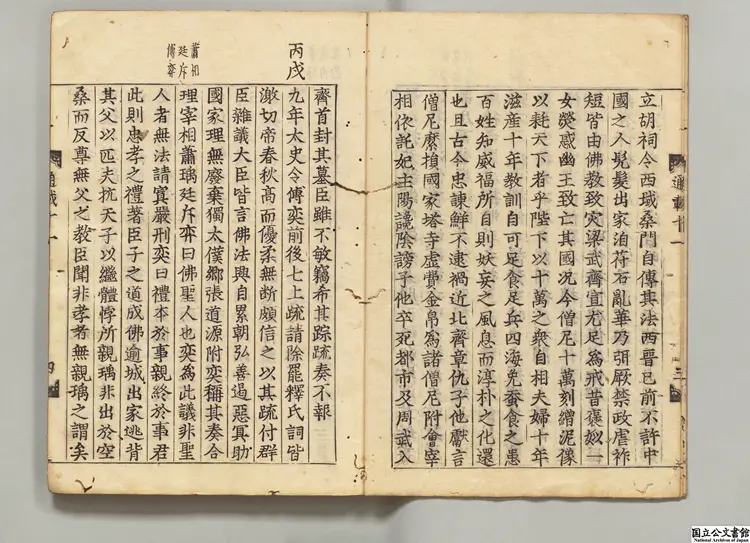 立胡祠令西域桑門自傳其法西晉已前不許中
國之人髠髮出家洎苻石亂華乃弭厥禁政虐祚
短皆由佛教致灾梁武齊宣尤足爲戒昔褒姒一
女熒惑幽王致亡其國况今僧尼十萬刻繒泥像
以耗天下者乎陛下以十萬之衆自相夫婦十年
滋産十年教訓自可足食足兵四海免蚕食之患
百姓知威福所自則妖妄之風息而淳朴之化還
也且古今忠諫鮮不逮禍近北齊章仇子他獻言
僧尼縻損國家塔寺虛費金帛爲諸僧尼附會宰
相依託妃主陽讒陰謗子他卒死都市及周武入
通載十一
三
齊首封其墓臣雖不敏竊希其踪疏奏不報
丙戌
九年太史令傅奕前後七上疏請除罷釋氏詞皆
激切帝春秋高而優柔無斷頗信之以其疏付群
臣雜議大臣皆言佛法興自累朝弘善遏惡冥助
國家理無廢棄獨太僕卿張道源附奕稱其奏合
蕭相
廷斥
傅奕
理宰相蕭瑀廷斥弈曰佛聖人也奕爲此議非聖
人者無法請寘嚴刑奕曰禮本於事親終於事君
此則忠孝之禮著臣子之道成佛逾城出家逃背
其父以匹夫抗天子以繼體悖所親瑀非出於空
桑而反尊無父之教臣聞非孝者無親瑀之謂矣
通載十一
四
国立公文書館
National Archives of Japan